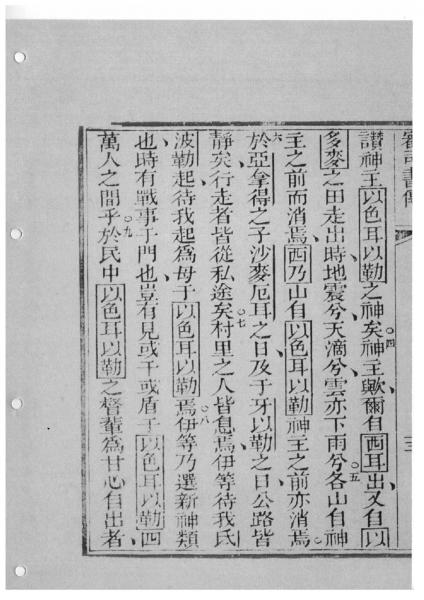 讚神主以色耳以勒之神矣○四神主歟爾自西耳出又自以
多麥之田走出時地震兮天滴兮雲亦下雨兮○五各山自神
主之前而消焉西乃山自以色耳以勒神主之前亦消焉○
六於亞拿得之子沙麥厄耳之日及于牙以勒之日公路皆
靜矣行走者皆從私途矣○七村里之人皆息焉伊等待我氐
波勒起待我起為母于以色耳以勒焉○八伊等乃選新神類
也時有戰事于門也豈有見或干或盾于以色耳以勒四
萬人之間乎○九於民中以色耳以勒之督輩為甘心自出者